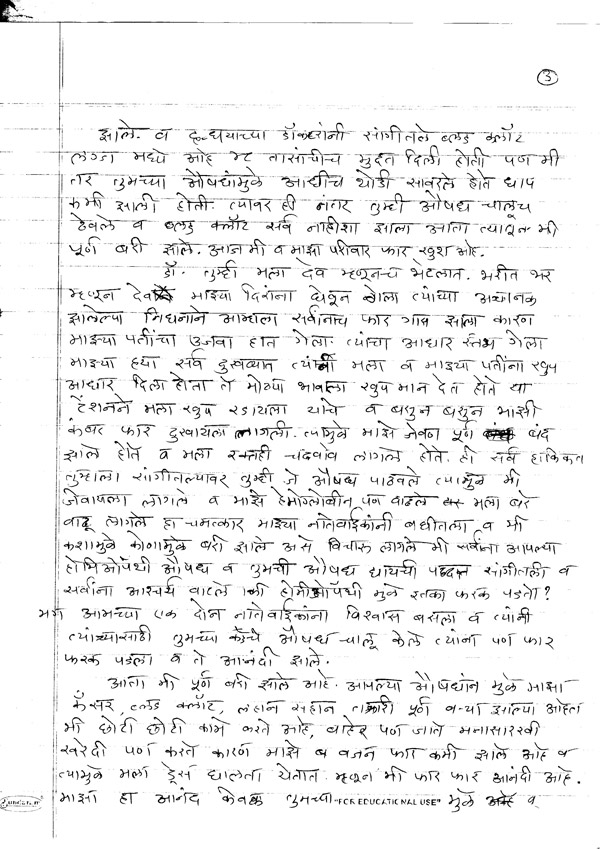 3
झाले. व हृदयाच्या डॉक्टरांनी सांगीतले ब्लड क्लॉट
लंग्ज मध्ये आहे ४८ तासांचीच मुदत दिली होती पण मी
तर तुमच्या औषधांमुळे आधीच थोडी सावरले होते धाप
कमी झाली होती. त्यावर ही नंतर तुम्ही औषध चालूच
ठेवले व ब्लड क्लॉट सर्व नाहीशा झाला आता त्यातून मी
पूर्ण बरी झाले. आज मी व माझा परिवार फार खुश आहे.
डॉ. तुम्ही मला देव म्हणूनच भेटलात. भरीत भर
म्हणून देव माझ्या दिरांना घेवून गेला त्यांच्या अचानक
झालेल्या निधनाने आम्हाला सर्वांनाच फार त्रास झाला कारण
माझ्या पतींचा उजवा हात गेला. त्यांचा आधार स्तंभ गेला
माझ्या ह्या सर्व दुखण्यात त्यांनी मला व माझ्या पतींना खुप
आधार दिला होता ते मोठ्या भावाला खुप मान देत होते या
टेंशनने मला खुप रडायला यायचे व बसुन बसुन माझी
कंबर फार दुखायला लागली. त्यामुळे माझे जेवण पूर्ण बंद
झाले होते व मला रक्तही चढवावे लागले होते. ही सर्व हाकिकत
तुम्हाला सांगीतल्यावर तुम्ही जे औषध पाठवले त्यामुळे मी
जेवायला लागले व माझे हेमोग्लोबीन पण वाढले मला बरे
वाटू लागले हा चमत्कार माझ्या नातेवाईकांनी बघीतला व मी
कशामुळे कोणामुळे बरी झाले असे विचारू लागले मी सर्वांना आपल्या
होमिओपॅथी औषध व तुमची औषध द्यायची पद्धत सांगीतली व
सर्वांना आश्चर्य वाटले की होमीओपॅथी मुळे इतका फरक पडतो?
मग आमच्या एक दोन नातेवाईकांना विश्वास बसला व त्यांनी
त्यांच्यासाठी तुमच्या कडचे औषध चालू केले त्यांना पण फार
फरक पडला व ते आनंदी झाले.
आता मी पूर्ण बरी झाले आहे. आपल्या औषधांन मुळे माझा
कॅंसर, ब्लड क्लॉट, लहान सहान तक्रारी पूर्ण बऱ्या झाल्या आहेत
मी छोटी छोटी कामे करते आहे, बाहेर पण जाते मनासारखी
खरेदी पण करते कारण माझे वजन फार कमी झाले आहे व
त्यामुळे मला ड्रेस घालता येतात म्हणून मी फार फार आनंदी आहे.
माझा हा आनंद केवळ तुमच्या "FOR EDUCATIONAL USE" मुळे आहे व